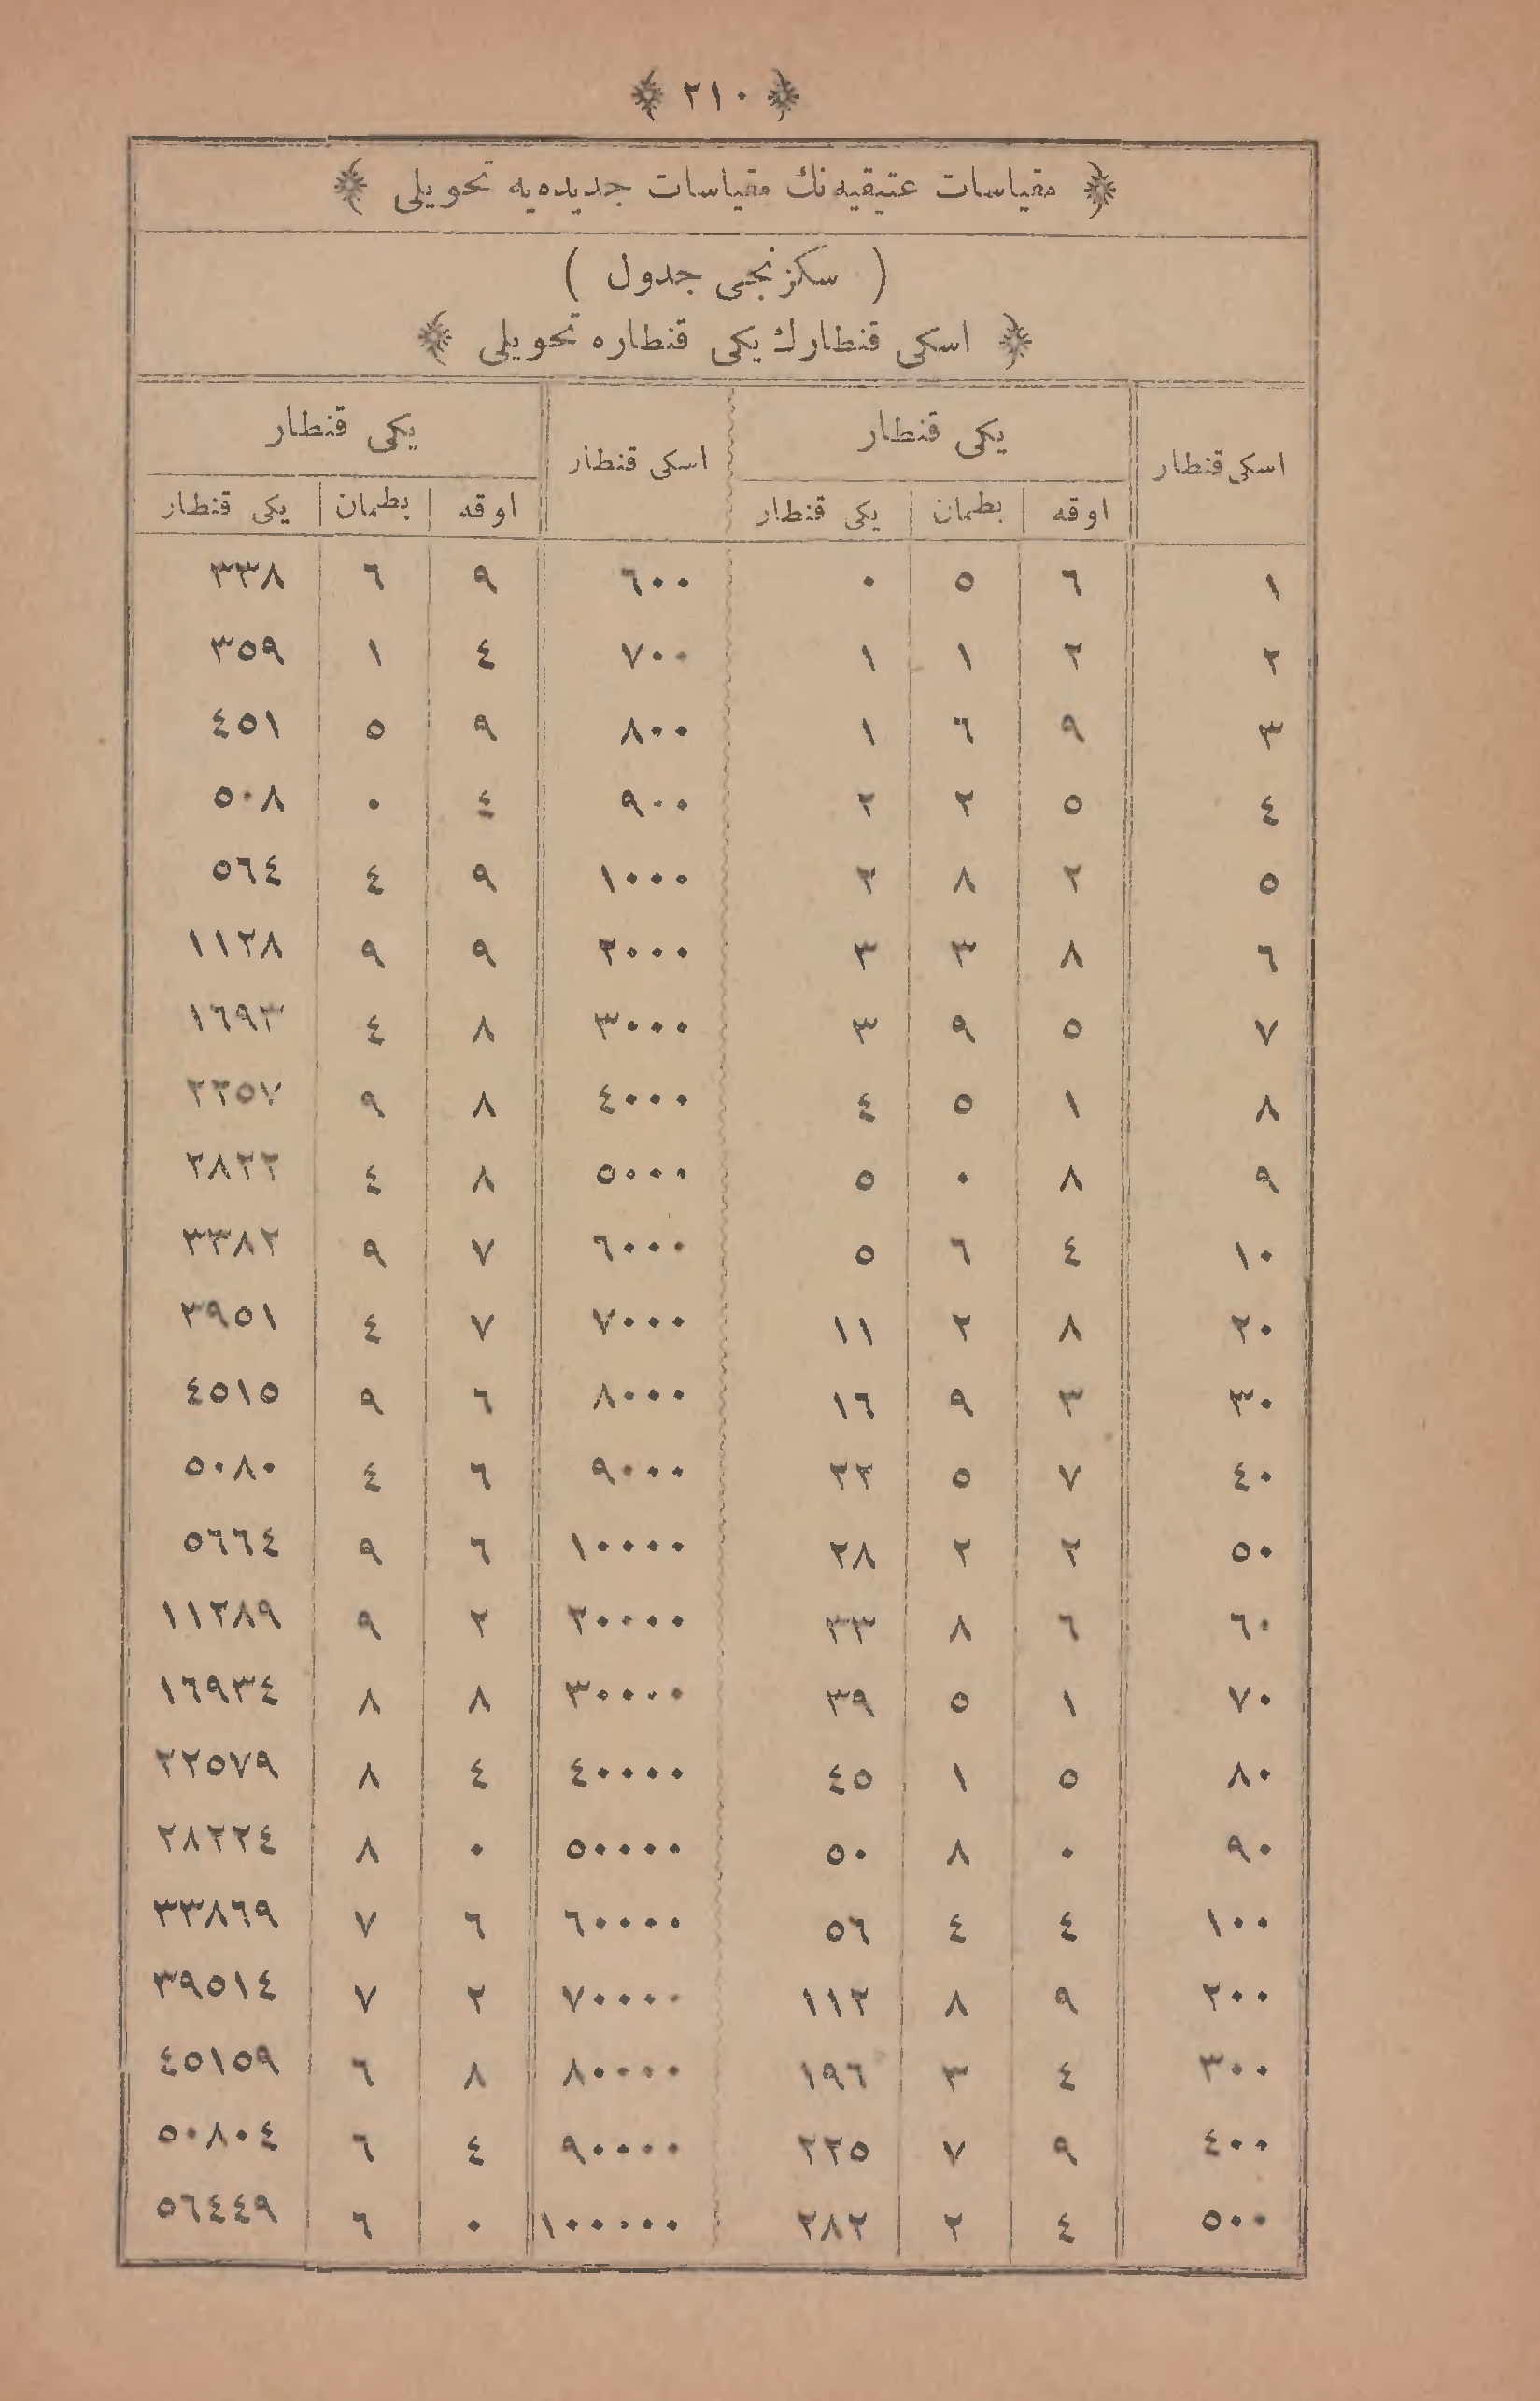 ٢١٠
مقیاسات عتیقیه‌نك مقیاسات جدیده‌یه تحویلی
( سکزنجی جدول )
اسکی قنطارك یکی قنطاره تحویلی
اسکی قنطار یکی قنطار اسکی قنطار یکی قنطار
اوقه بطمان یکی قنطار اوقه بطمان یکی قنطار
١ ٦ ٥ ٠ ٦٠٠ ٩ ٦ ٣٣٨
٢ ٢ ١ ١ ٧٠٠ ٤ ١ ٣٥٩
٣ ٩ ٦ ١ ٨٠٠ ٩ ٥ ٤٥١
٤ ٥ ٢ ٢ ٩٠٠ ٤ ٠ ٥٠٨
٥ ٢ ٨ ٢ ١٠٠٠ ٩ ٤ ٥٦٤
٦ ٨ ٣ ٣ ٢٠٠٠ ٩ ٩ ١١٢٨
٧ ٥ ٩ ٣ ٣٠٠٠ ٨ ٤ ١٦٩٣
٨ ١ ٥ ٤ ٤٠٠٠ ٨ ٩ ٢٢٥٧
٩ ٨ ٠ ٥ ٥٠٠٠ ٨ ٤ ٢٨٢٢
١٠ ٤ ٦ ٥ ٦٠٠٠ ٧ ٩ ٣٣٨٢
٢٠ ٨ ٢ ١١ ٧٠٠٠ ٧ ٤ ٣٩٥١
٣٠ ٣ ٩ ١٦ ٨٠٠٠ ٦ ٩ ٤٥١٥
٤٠ ٧ ٥ ٢٢ ٩٠٠٠ ٦ ٤ ٥٠٨٠
٥٠ ٢ ٢ ٢٨ ١٠٠٠٠ ٦ ٩ ٥٦٦٤
٦٠ ٦ ٨ ٣٣ ٢٠٠٠٠ ٢ ٩ ١١٢٨٩
٧٠ ١ ٥ ٣٩ ٣٠٠٠٠ ٨ ٨ ١٦٩٣٤
٨٠ ٥ ١ ٤٥ ٤٠٠٠٠ ٤ ٨ ٢٢٥٧٩
٩٠ ٠ ٨ ٥٠ ٥٠٠٠٠ ٠ ٨ ٢٨٢٢٤
١٠٠ ٤ ٤ ٥٦ ٦٠٠٠٠ ٦ ٧ ٣٣٨٦٩
٢٠٠ ٩ ٨ ١١٢ ٧٠٠٠٠ ٢ ٧ ٣٩٥١٤
٣٠٠ ٤ ٣ ١٩٦ ٨٠٠٠٠ ٨ ٦ ٤٥١٥٩
٤٠٠ ٩ ٧ ٢٢٥ ٩٠٠٠٠ ٤ ٦ ٥٠٨٠٤
٥٠٠ ٤ ٢ ٢٨٢ ١٠٠٠٠٠ ٠ ٦ ٥٦٤٤٩